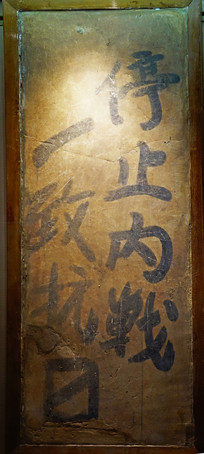 停止内戰
一致抗日